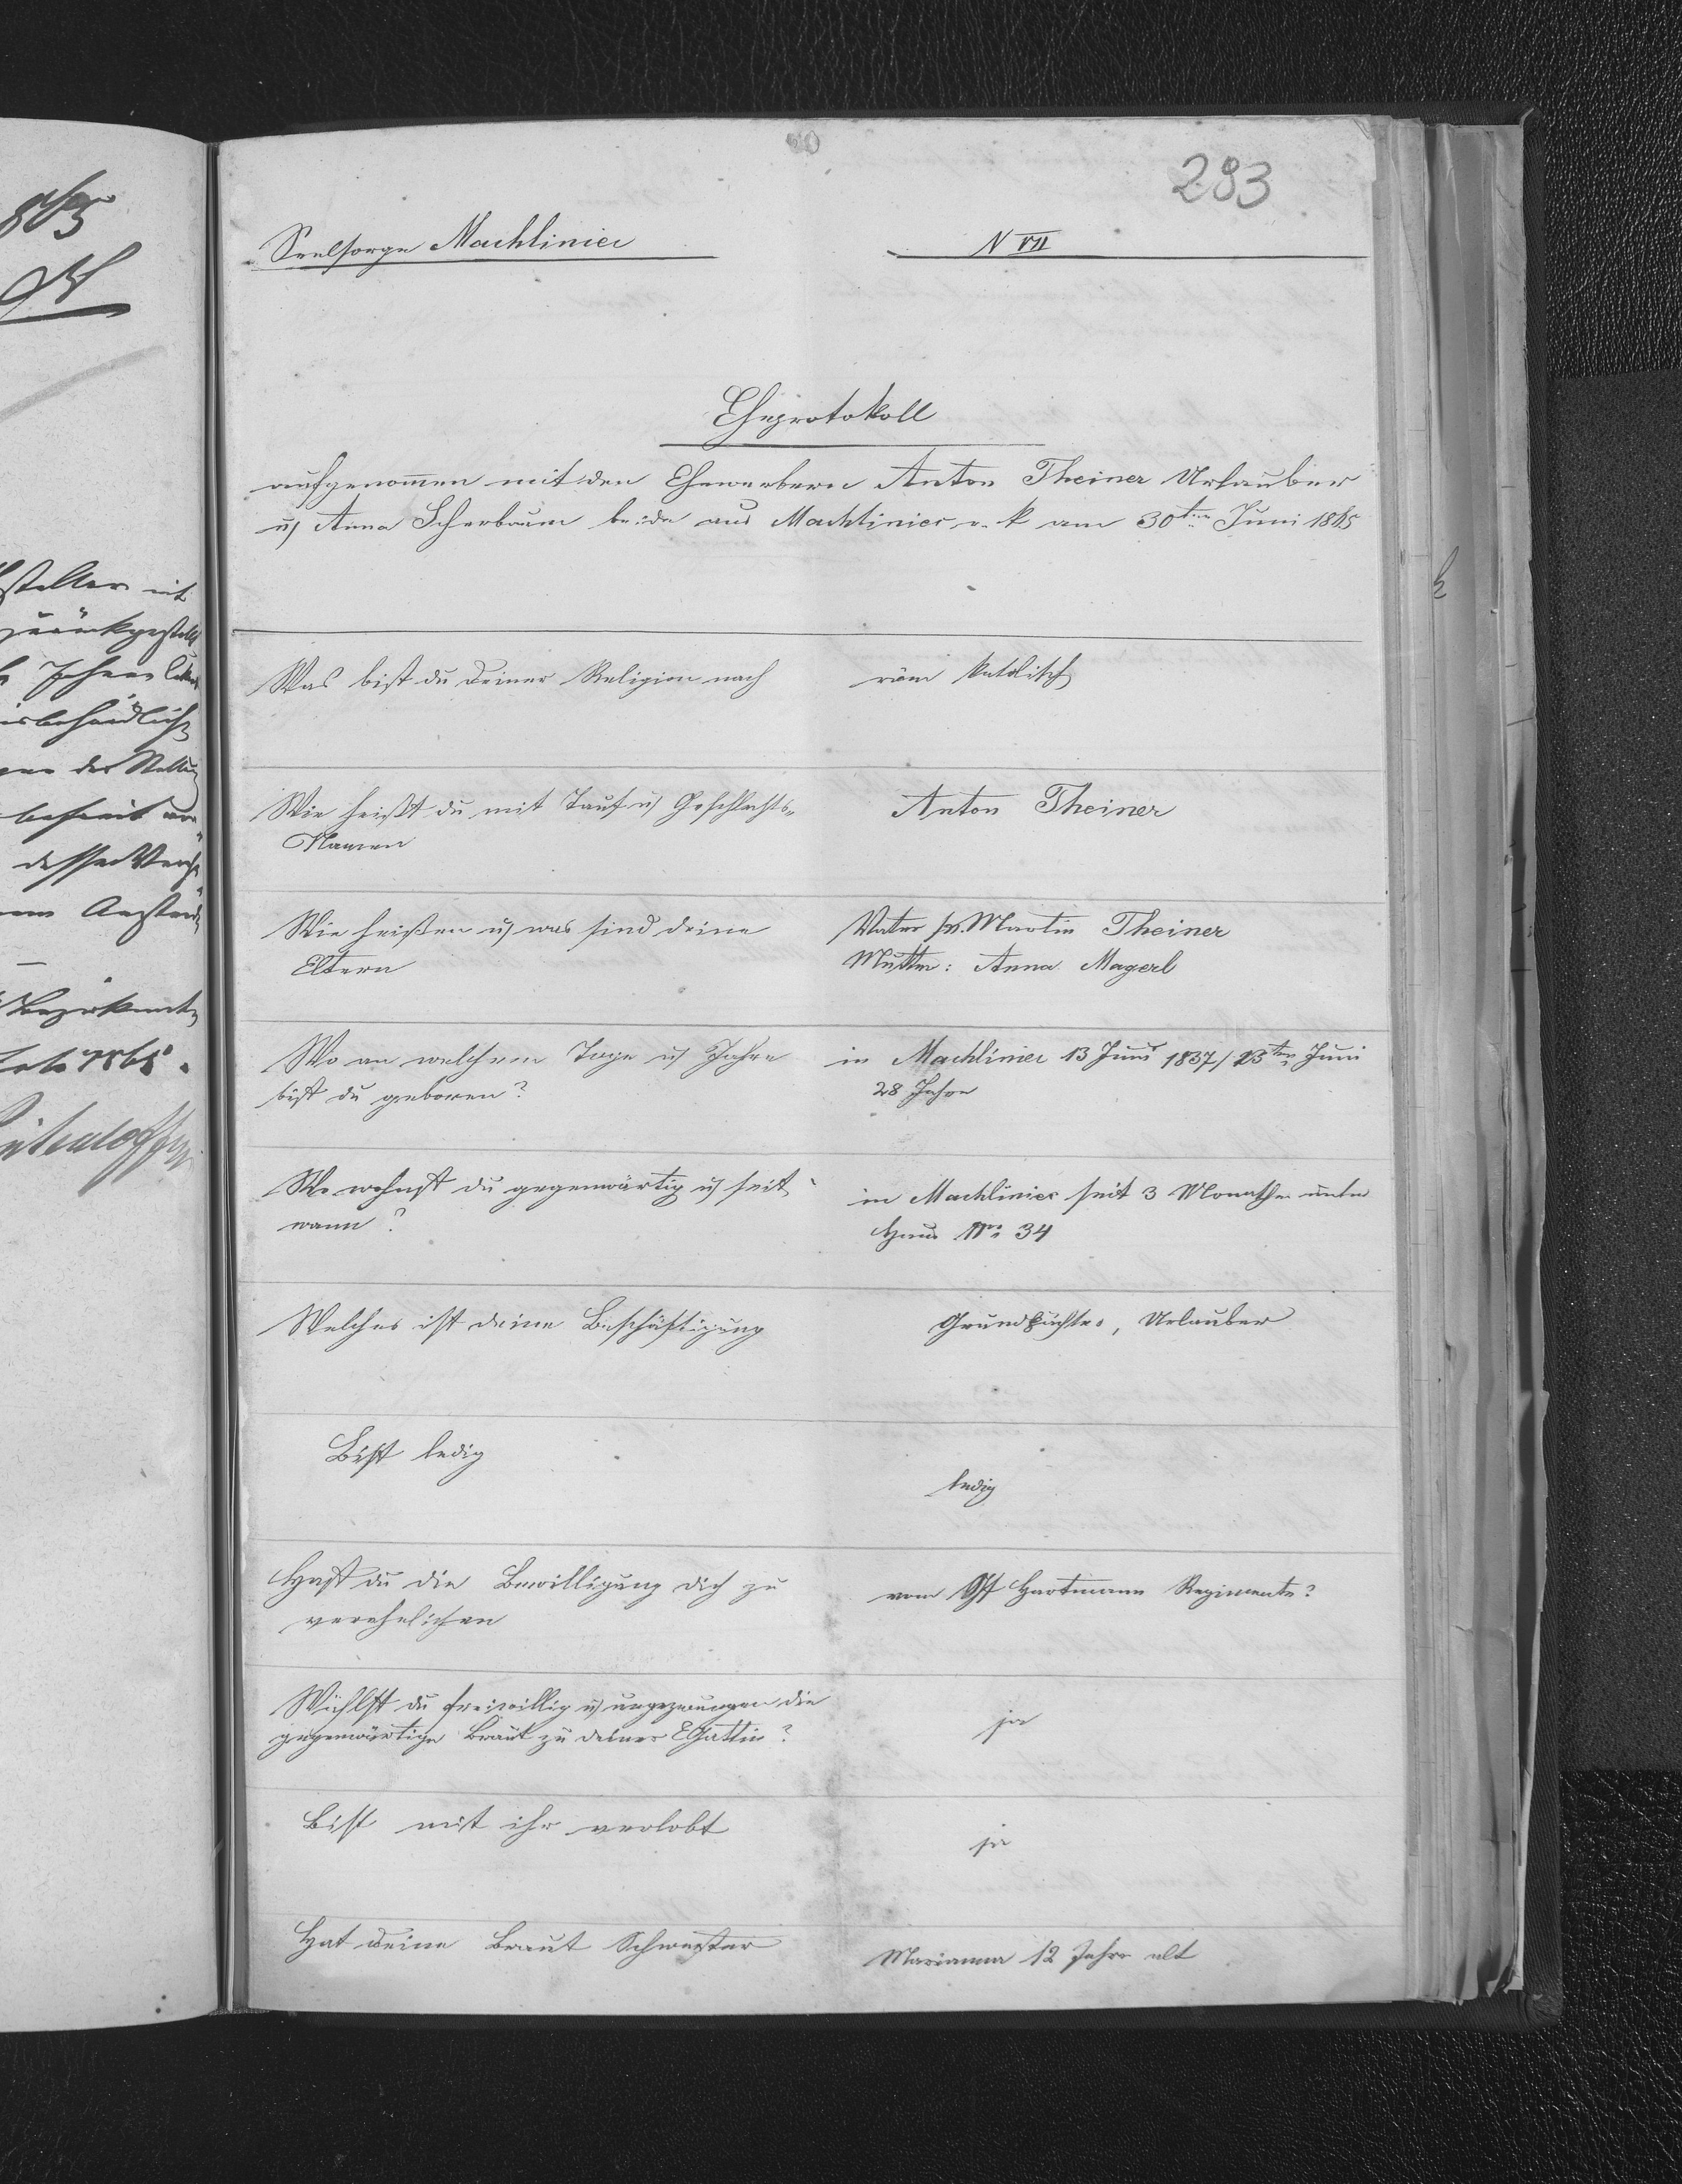 293
Seelsorge Machliniec
N VII
Eheprotokoll
aufgenom̄en mit den Ehewerbern Anton Theiner Urlauber
u Anna Scherbaum beide aus Machliniec r. k am 30ten Juni 1865
Was bist du deiner Religion nach
röm katolisch
Wie heißt du mit Tauf u Geschlechts-
Namen
Anton Theiner
Wie heißen u was sind deine
Eltern
Vater Martin Theiner
Mutter: Anna Magerl
Wo an welchem Tage u Jahre
bist du geboren?
in Machliniec 13 Juni 1837/ 23ten Juni
28 Jahre
Wo wohnst du gegenwärtig u seit
wann?
in Machliniec seit 3 Monathe unter
Haus Nro 34
Welches ist deine Beschäftigung
Grundpächter, Urlauber
Bist ledig
ledig
Hast du die Bewilligung dich zu
verehelichen
vom Gf Hartmann Regimente?
Wählst du freiwillig u ungezwungen die
gegenwärtige Braut zu deiner EGattin?
ja
Bist mit ihr verlobt
ja
Hat deine Braut Schwester
Marianna 12 Jahre alt